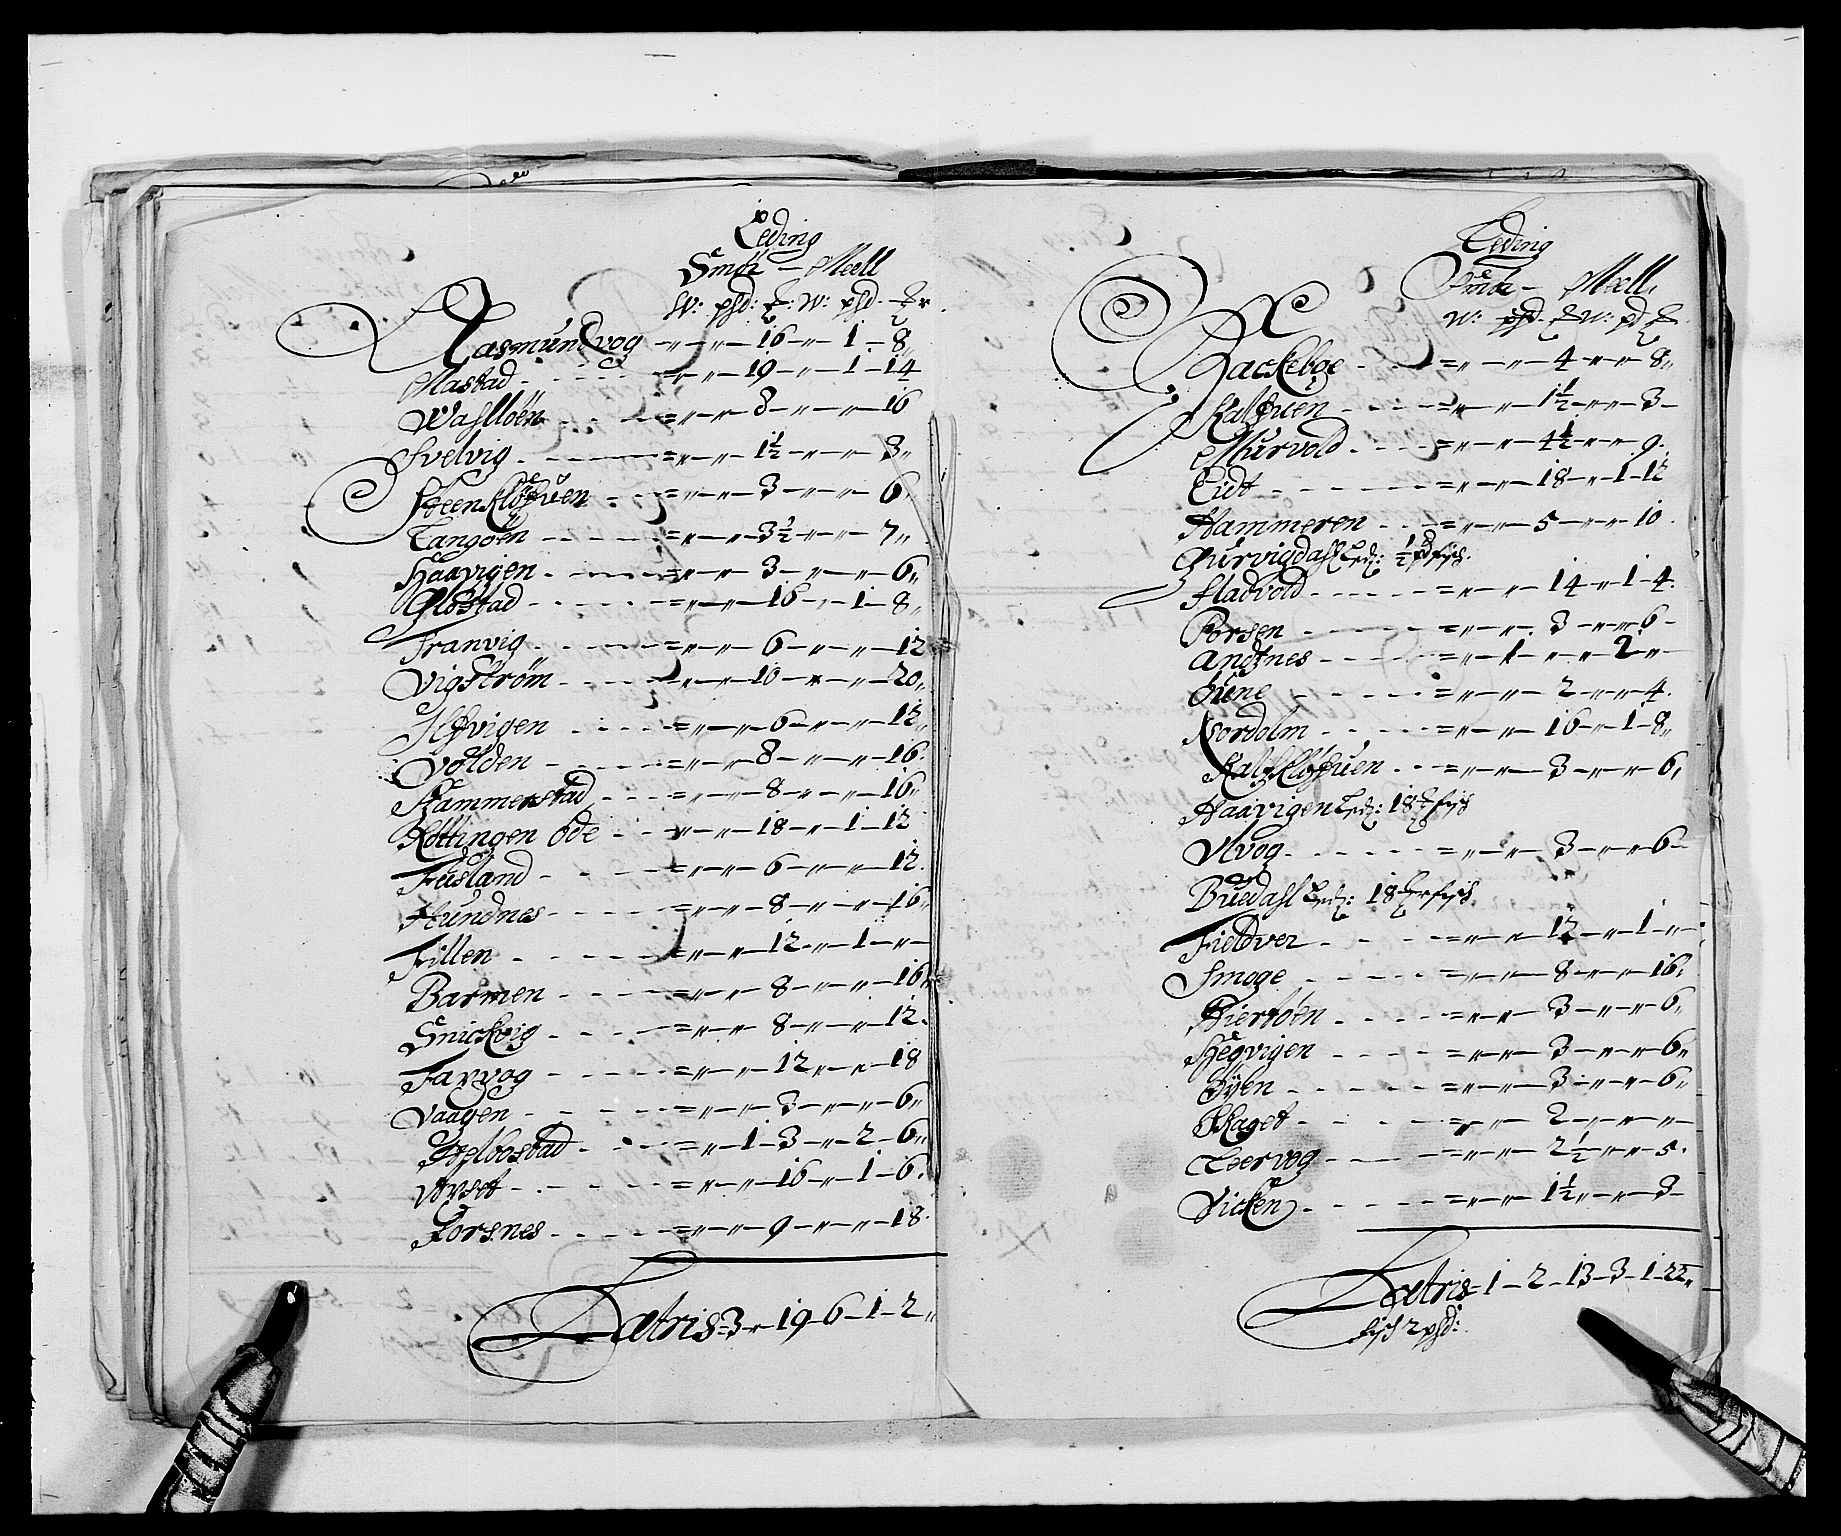 Leding
Smör – Meell
W: psd: ℔: W: psd. ℔r
Rasmundvog – „ – „ – 16 – „ – 1 – 8„
Mastad – „ – „ – 19 – „ – 1 – 14
Waslöen = „ – „ – 8 – „ – „ – 16
Svelvig = „ – „ – 1½ – „ – „ – 3„
Steenkløfuen = „ – „ – 3 – „ – „ – 6„
Tangöen = „ – „ – 3½ – „ – „ – 7„
Haavigen = „ – „ – 3 – „ – „ – 6„
Glostad = „ – „ – 16 – „ – 1 – 8„
Franvig = „ – „ – 6 – „ – „ – 12
Vigström = „ – „ – 10 – „ – „ – 20„
Ilfvigen = „ – „ – 6 – „ – „ – 12„
Volden = „ – „ – 8 – „ – „ – 16.
Hammerstad = „ – „ – 8 – „ – „ – 16„
Kottingen öde – „ – „ – 18 – „ – 1 – 12
Fusland = „ – „ – 6 – „ – „ – 12.
Hundnes = „ – „ – 8 – „ – „ – 16„
Fillen = „ – „ – 12 – „ – 1 – „ –
Barmen = „ – „ – 8 – „ – „ – 16„
Snickvig = „ – „ – 8 – „ – „ – 12.
Farvog = „ – „ – 12 – „ – „ – 18
Vaagen = „ – „ – 3 – „ – „ – 6„
Selbostad = „ – 1 – 3 – „ – 2 – 6„
Uvset = „ – „ – 16 – „ – 1 – 6.
Forsnes = „ – „ – 9 – „ – „ – 18.
Latris – 3 – „ – 19 – 6 – 1 – 2„
Leding
Smör – Meell„
W: psd. ℔ W: pd ℔.
Backeböe = „ – „ – 4 – „ – „ – 8„
Kalfuen = „ – „ – 1½ – „ – „ – 3 –
Murvold = „ – „ – 4½ – „ – „ – 9.
Eidt = „ – „ – 18 – „ – 1 – 12
Hammeren = „ – „ – 5 – „ – „ – 10.
Gurvigdahl Led: ½ pd fisch.
Stadvold = „ – „ – 14 – „ – 1 – 4.
Porsen = „ – „ – 3 – „ – „ – 6 –
Andtnes = „ – 1 – „ – „ – 2 – „ –
Öune = „ – „ – 2 – „ – „ – 4.
Nordolm = „ – „ – 16 – „ – 1 – 8„
Kalfkløfuen = „ – „ – 3 – „ – „ – 6,
Haavigen Led: 18 ℔ fisch
Ulvog = „ – „ – 3 – „ – „ – 6 –
Buedahl Led: 18 ℔r fisch
Fieldver = „ – „ – 12 – „ – 1 – „ –
Smoge = „ – „ – 8 – „ – „ – 16,
Hiertöen = „ – „ – 3 – „ – „ – 6„
Hegvigen = „ – „ – 3 – „ – „ – 6„
Byen = „ – „ – 3 – „ – „ – 6„
Skaget = „ – „ – 2 – „ – „ – „ –
Teervog = „ – „ – 2½ – „ – „ – 5.
Vicken = „ – „ – 1½ – „ – „ – 3 –
Latris – 1 – 2 – 13 – 3 – 1 – 22„
fisch 2 psd: